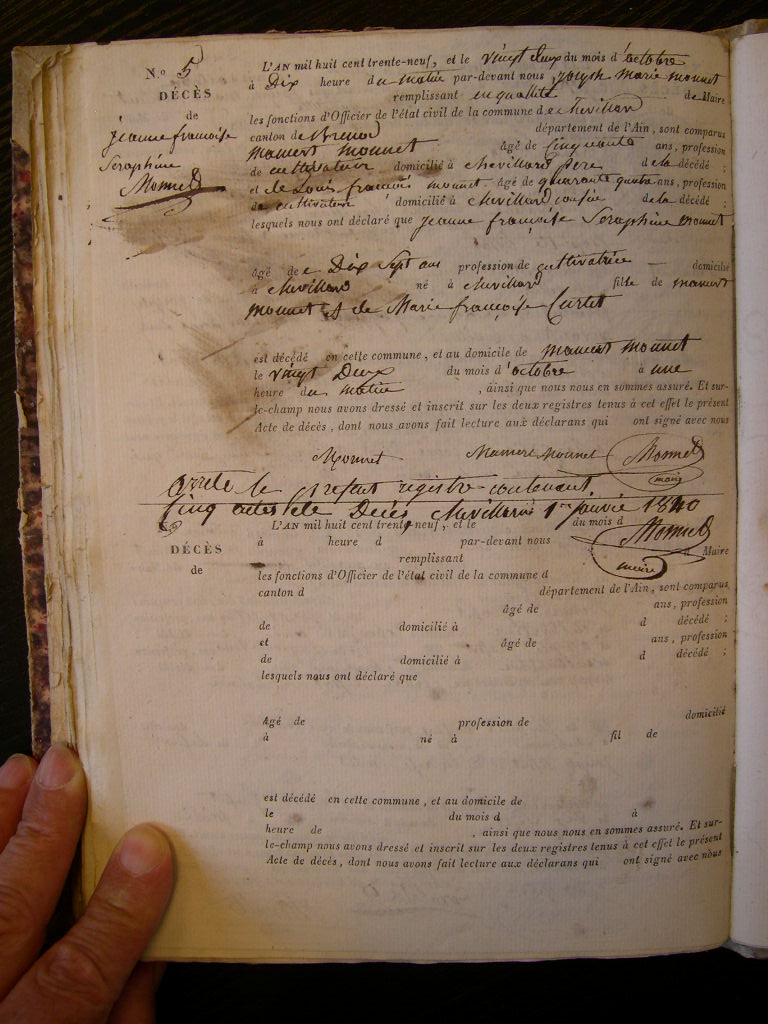 N.o 5
DÉCÈS
de
jeanne françoise
Seraphine
Monnet
L'AN mil huit cent trente-neuf, et le vingt deux du mois d'octobre
à Dix heure du matin par-devant nous joseph marie monnet
remplissant en qualité de Maire
les fonctions d'Officier de l'état civil de la commune de chevillard
canton de Brenod département de l'Ain, sont comparus
mamert monnet âgé de cinquante ans, profession
de cultivateur domicilié à chevillard père de la décédé ;
et de Louis françois monnet âgé de quarante quatre ans, profession
de cultivateur domicilié à chevillard de la décédé ;
lesquels nous ont déclaré que jeanne françoise Seraphine monnet
âgé de Dix Sept ans profession de cultivatrice domicilié
à chevillard né à chevillard fille de mamert
monnet & de Marie françoise Curtet
est décédé en cette commune, et au domicile de mamert monnet
le vingt Deux du mois d'octobre à une
heure du matin , ainsi que nous nous en sommes assuré. Et sur-
le-champ nous avons dressé et inscrit sur les deux registres tenus à cet effet le présent
Acte de décès, dont nous avons fait lecture aux déclarans qui ont signé avec nous
Monnet Mamert Monnet Monnet
maire
arrêté le présent registre contenant
Cinq actes de Décès chevillard 1er janvié 1840
Monnet
maire
N.o
DÉCÈS
de
L'AN mil huit cent trente-neuf, et le du mois d
à heure d par-devant nous
remplissant d Maire
les fonctions d'Officier de l'état civil de la commune d
canton d département de l'Ain, sont comparus
âgé de ans, profession
de domicilié à d décédé ;
et âgé de ans, profession
de domicilié à d décédé ;
lesquels nous ont déclaré que
âgé de profession de domicilié
à né à fil de
est décédé en cette commune, et au domicile de
le du mois d à
heure de , ainsi que nous nous en sommes assuré. Et sur-
le-champ nous avons dressé et inscrit sur les deux registres tenus à cet effet le présent
Acte de décès, dont nous avons fait lecture aux déclarans qui ont signé avec nous